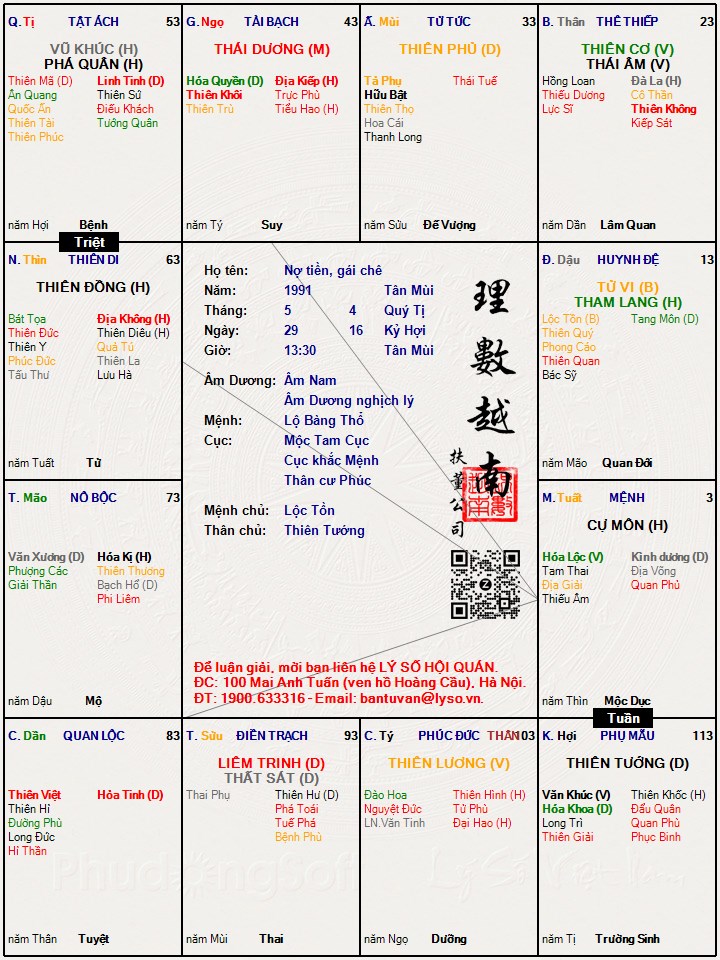 Q. Tị TẬT ÁCH 53
VŨ KHÚC (H)
PHÁ QUÂN (H)
Thiên Mã (D) Linh Tinh (D)
Ân Quang Thiên Sứ
Quốc Ấn Điếu Khách
Thiên Tài Tướng Quân
Thiên Phúc
năm Hợi Bệnh
G. Ngọ TÀI BẠCH 43
THÁI DƯƠNG (M)
Hóa Quyền (D) Địa Kiếp (H)
Thiên Khôi Trực Phù
Thiên Trù Tiểu Hao (H)
năm Tý Suy
Ấ. Mùi TỬ TỨC 33
THIÊN PHỦ (D)
Tả Phụ Thái Tuế
Hữu Bật
Thiên Thọ
Hoa Cái
Thanh Long
năm Sửu Đế Vượng
B. Thân THÊ THIẾP 23
THIÊN CƠ (V)
THÁI ÂM (V)
Hồng Loan Đà La (H)
Thiếu Dương Cô Thần
Lực Sĩ Thiên Không
Kiếp Sát
năm Dần Lâm Quan
Triệt
N. Thìn THIÊN DI 63
THIÊN ĐỒNG (H)
Bát Tọa Địa Không (H)
Thiên Đức Thiên Diêu (H)
Thiên Y Quả Tú
Phúc Đức Thiên La
Tấu Thư Lưu Hà
năm Tuất Tử
Họ tên: Nợ tiền, gái chê
Năm: 1991 Tân Mùi
Tháng: 5 4 Quý Tị
Ngày: 29 16 Kỷ Hợi
Giờ: 13:30 Tân Mùi
Âm Dương: Âm Nam
Âm Dương nghịch lý
Mệnh: Lộ Bàng Thổ
Cục: Mộc Tam Cục
Cục khắc Mệnh
Thân cư Phúc
Mệnh chủ: Lộc Tồn
Thân chủ: Thiên Tướng
理數越南
扶董公司
Để luận giải, mời bạn liên hệ LÝ SỐ HỘI QUÁN.
ĐC: 100 Mai Anh Tuấn (ven hồ Hoàng Cầu), Hà Nội.
ĐT: 1900.633316 - Email: bantuvan@lyso.vn.
Đ. Dậu HUYNH ĐỆ 13
TỬ VI (B)
THAM LANG (H)
Lộc Tồn (B) Tang Môn (D)
Thiên Quý
Phong Cáo
Thiên Quan
Bác Sỹ
năm Mão Quan Đới
T. Mão NÔ BỘC 73
Văn Xương (D) Hóa Kị (H)
Phượng Các Thiên Thương
Giải Thần Bạch Hổ (D)
Phi Liêm
năm Dậu Mộ
M. Tuất MỆNH 3
CỰ MÔN (H)
Hóa Lộc (V) Kình dương (D)
Tam Thai Địa Võng
Địa Giải Quan Phủ
Thiếu Âm
năm Thìn Mộc Dục
Tuần
C. Dần QUAN LỘC 83
Thiên Việt Hỏa Tinh (D)
Thiên Hỉ
Đường Phù
Long Đức
Hỉ Thần
năm Thân Tuyệt
T. Sửu ĐIỀN TRẠCH 93
LIÊM TRINH (D)
THẤT SÁT (D)
Thai Phụ Thiên Hư (D)
Phá Toái
Tuế Phá
Bệnh Phù
năm Mùi Thai
C. Tý PHÚC ĐỨC THÂN 103
THIÊN LƯƠNG (V)
Đào Hoa Thiên Hình (H)
Nguyệt Đức Tử Phù
LN.Văn Tinh Đại Hao (H)
năm Ngọ Dưỡng
K. Hợi PHỤ MẪU 113
THIÊN TƯỚNG (D)
Văn Khúc (V) Thiên Khốc (H)
Hóa Khoa (D) Đẩu Quân
Long Trì Quan Phù
Thiên Giải Phục Binh
năm Tị Trường Sinh